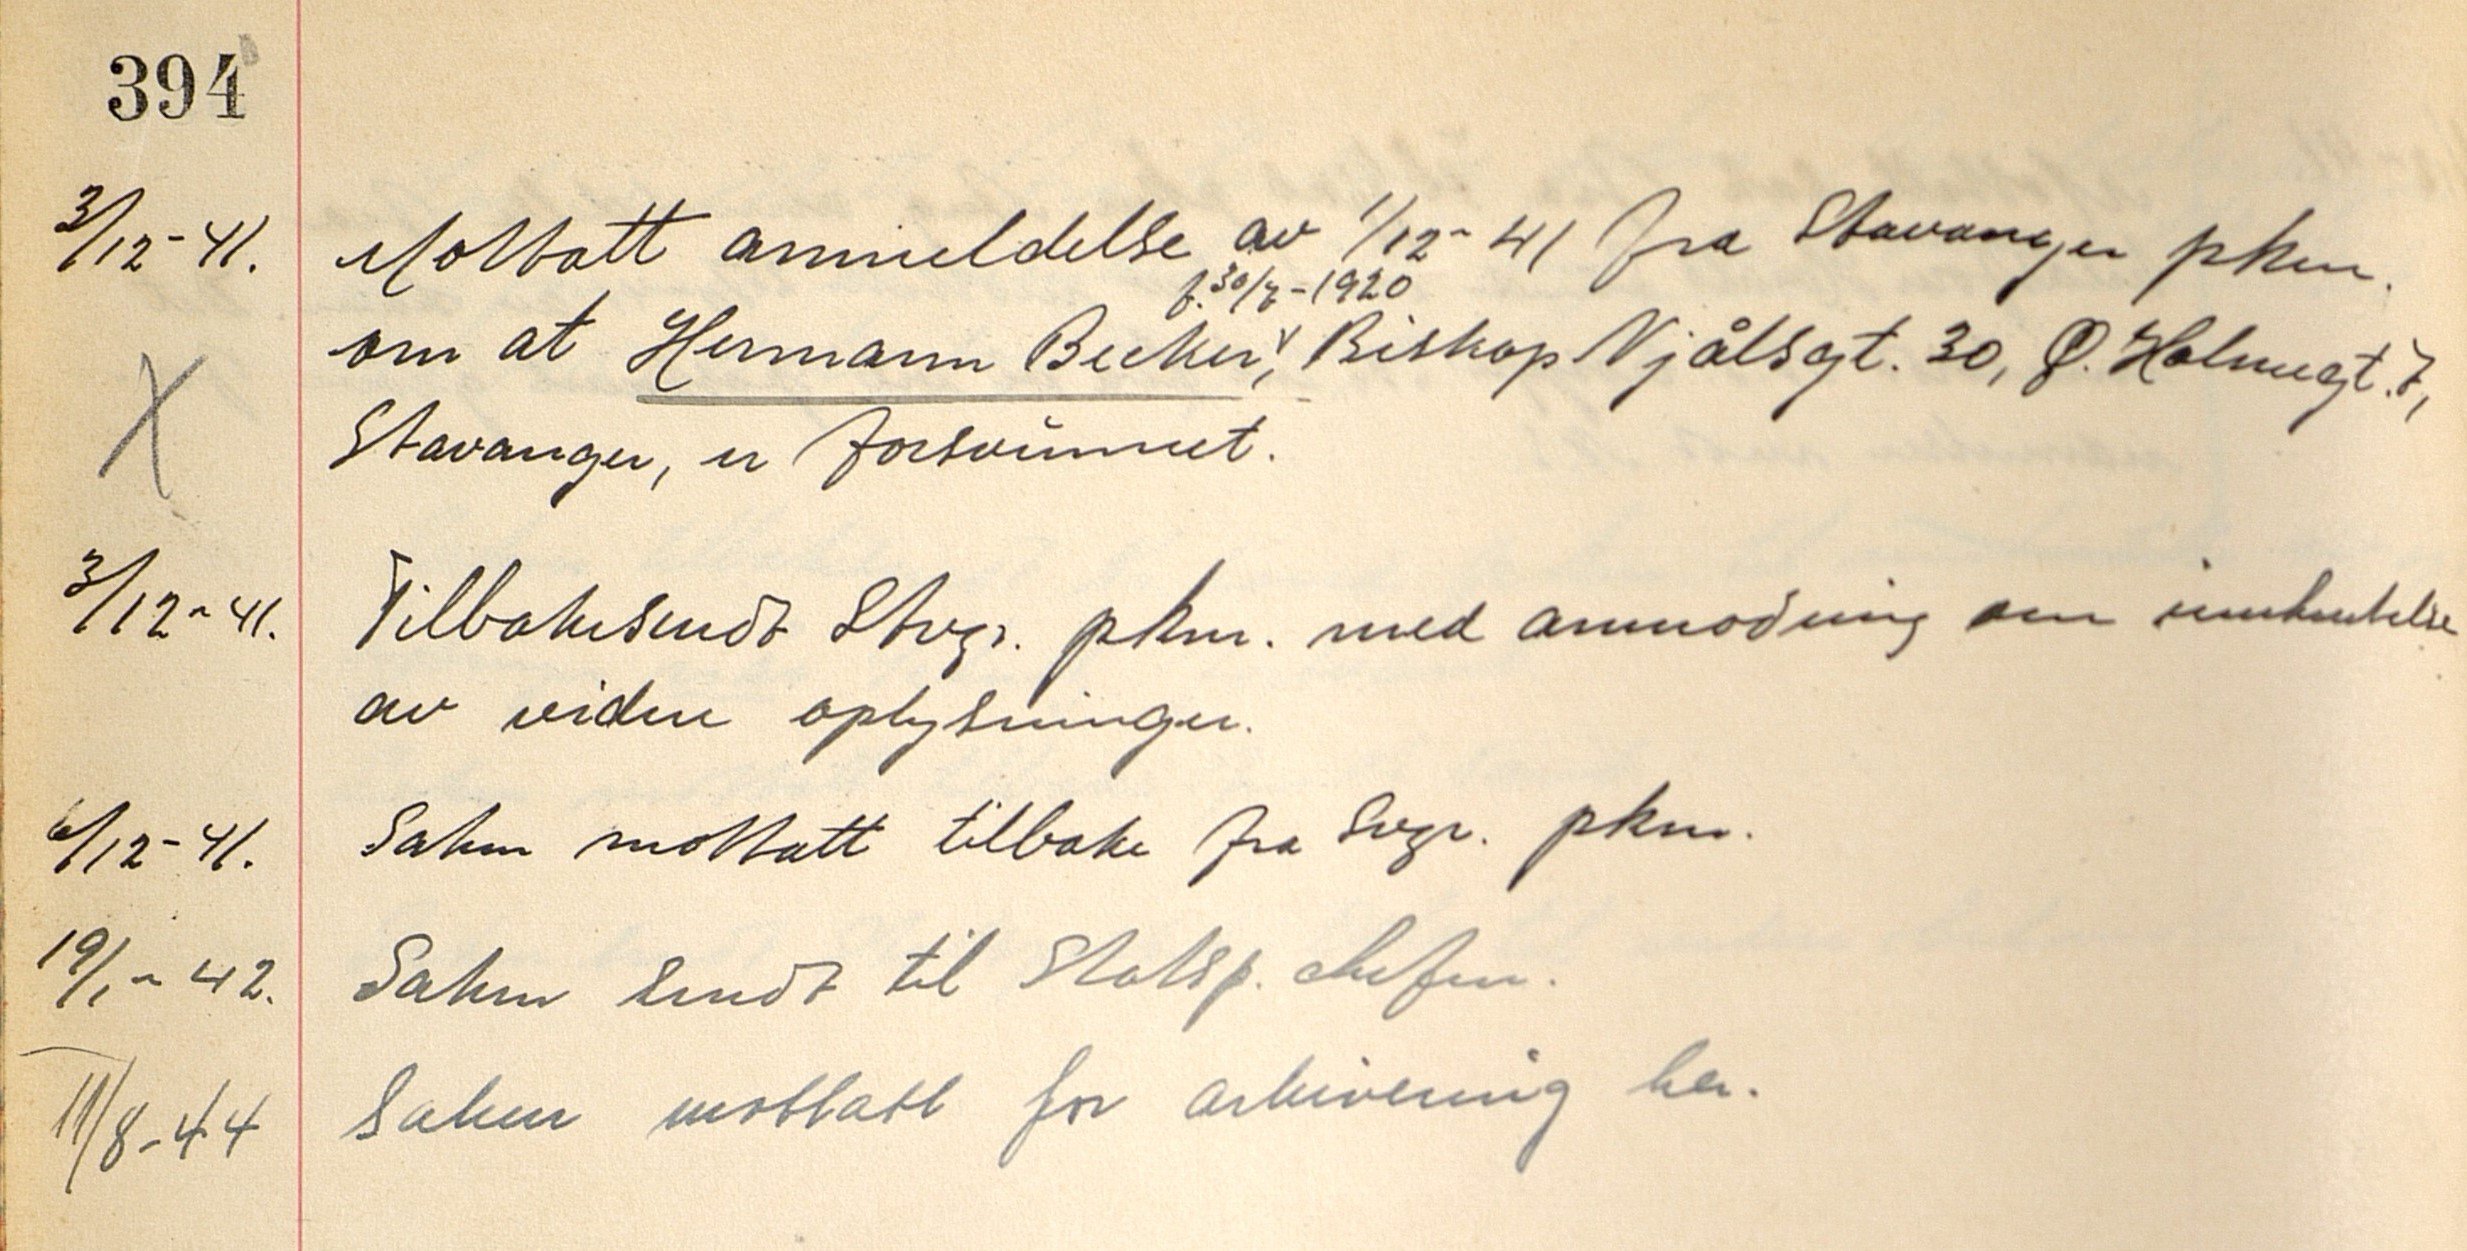 394
3/12-41. Mottatt anmeldelse av 1/12-41 fra Stavanger pkm.
f. 30/7-1920
om at Hermann Becker, Biskop Njålsgt. 30, Ø. Holmegt. 7,
Stavanger, er forsvunnet.
3/12-41. Tilbakesendt Stvgr. pkm. med anmodning om innhentelse
av videre oplysninger.
6/12-41. Saken mottatt tilbake fra Svgr. pkm.
19/1-42. Saken sendt til Statsp.chefen.
11/8-44 Saken mottatt for arkivering her.